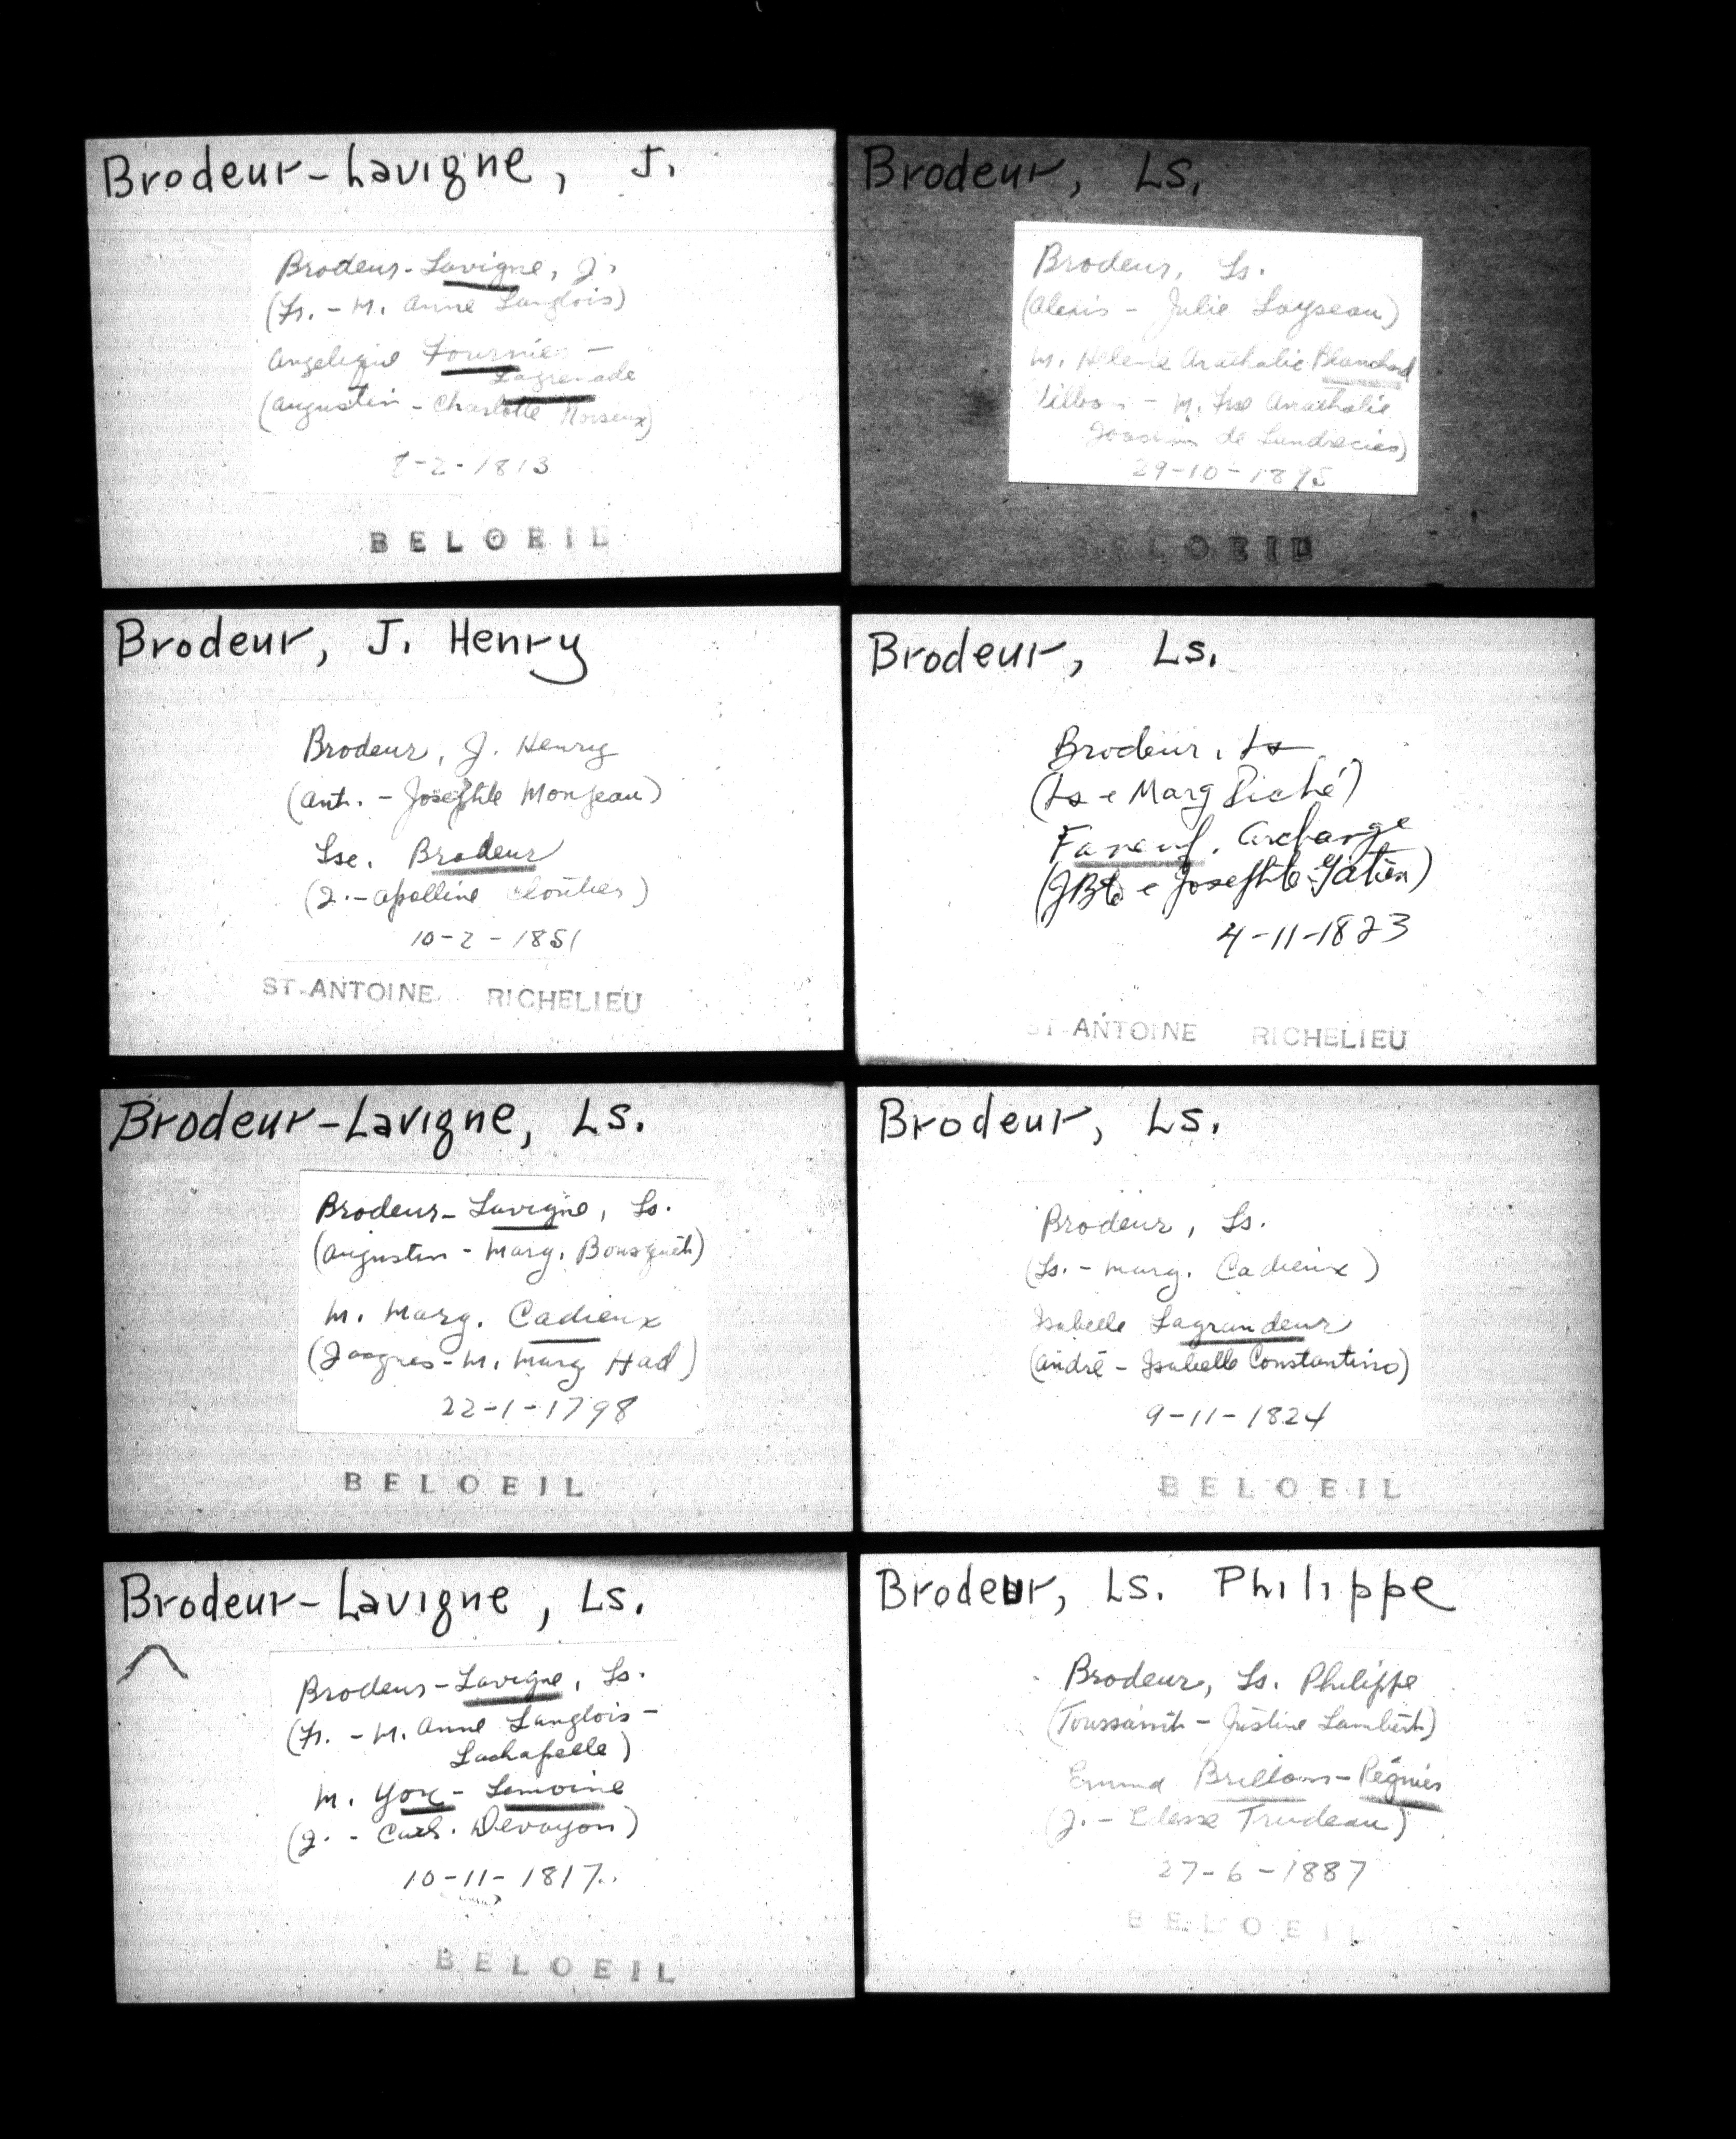 Brodeur-Lavigne, J.
Brodeur-Lavigne, J.
(Fr. - M. Anne Langlois)
Angelique Fournier -
Lagrenade
(Augustin - Charlotte Noiseux)
8-2-1813
BELOEIL
Brodeur, Ls.
Brodeur, Ls.
(Alexis - Julie Loyseau)
M. Helene Anathalie Blanchard
M. Frse Anathalie
de
29-10-1895
BELOEIL
Brodeur, J. Henry
Brodeur, J. Henry
(Ant. - Josephte Monjeau)
Lse. Brodeur
(J. - Apolline Cloutier)
10-2-1851
ST-ANTOINE RICHELIEU
Brodeur, Ls.
Brodeur, Ls
(Ls e Marg Piché)
Faneuf, Archange
(JBte e Josephte Gatien)
4-11-1823
ST-ANTOINE RICHELIEU
Brodeur-Lavigne, Ls.
Brodeur-Lavigne, Ls.
(Augustin - Marg. Bousquet)
M. Marg. Cadieux
(Jacques - M. Marg Had)
22-1-1798
BELOEIL
Brodeur, Ls.
Brodeur, Ls.
(Ls. - Marg. Cadieux)
Isabelle Lagrandeur
(André - Isabelle Constantino)
9-11-1824
BELOEIL
Brodeur-Lavigne, Ls.
Brodeur-Lavigne, Ls.
(Fr. - M. Anne Langlois -
Lachapelle)
M. Yox - Lemoine
(J. - Cath. Devoyon)
10-11-1817
BELOEIL
Brodeur, Ls. Philippe
Brodeur, Ls. Philippe
(Toussaint - Justine Lambert)
Emma Brillon - Régnier
(J. - Edesse Trudeau)
27-6-1887
BELOEIL